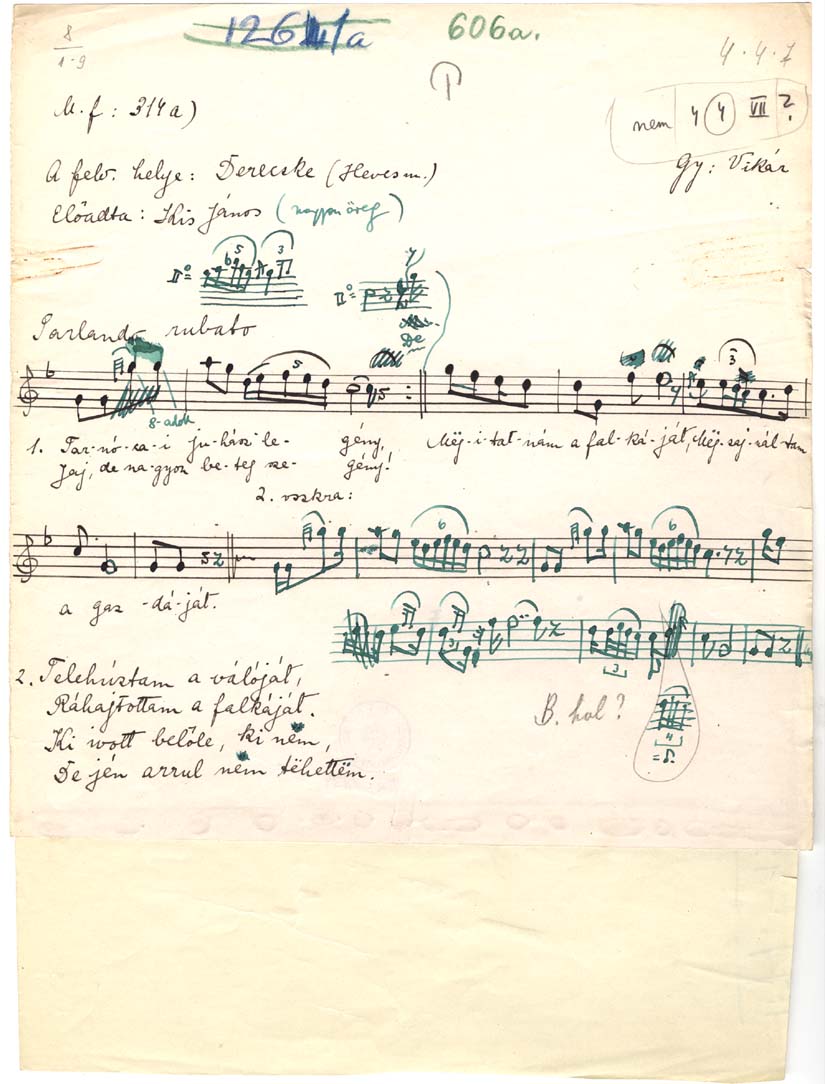 8
1-9
1264/a
606a.
4 · 4 · 7
M. f : 314a)
nem 4 4 VII ?
A felv. helye: Derecske (Heves m.)
Gy: Vikár
Előadta: Kis János (nagyon öreg)
II°=
5
3
II°=
7
De
Parlando rubato
5
3
8-adok
1. Tar-nó-ca-i ju-hász le-gény, Mëg-i-tat-nám a fal-ká-ját, Mëg-saj-nál-tam
Jaj, de na-gyon be-teg sze-gény!
2. vszkra:
6
6
a gaz-dá-ját.
3
3
2. Telehúztam a válóját,
Ráhajtottam a falkáját.
Ki ivott belőle, ki nëm,
De jén arrul nëm tëhettëm.
B. hol?
4